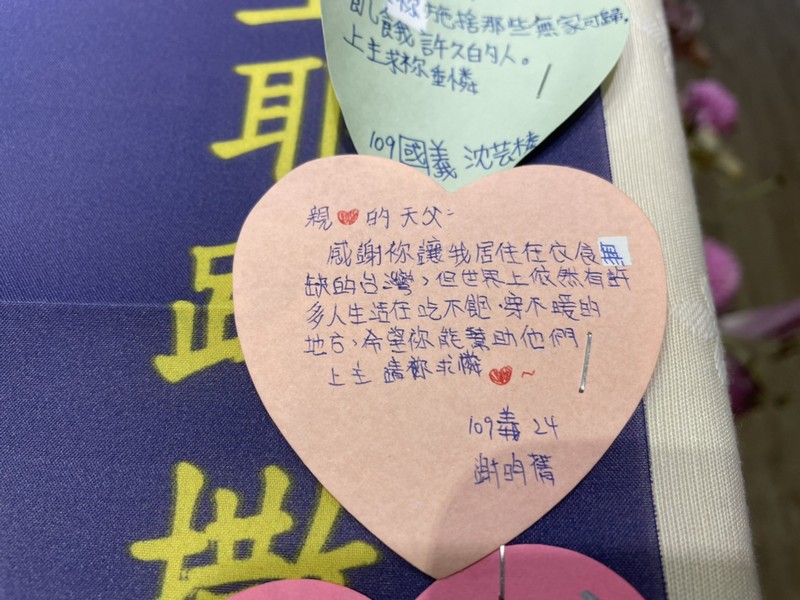 耶
路
撒
飢餓許久的人。
上主求祢垂憐
109 國義 沈芸
親❤的天父:
感謝祢讓我居住在衣食無
缺的台灣,但世界上依然有許
多人生活在吃不飽、穿不暖的
地方,希望祢能幫助他們
上主 請祢求憐 ❤~
109義 24
謝昀蒨